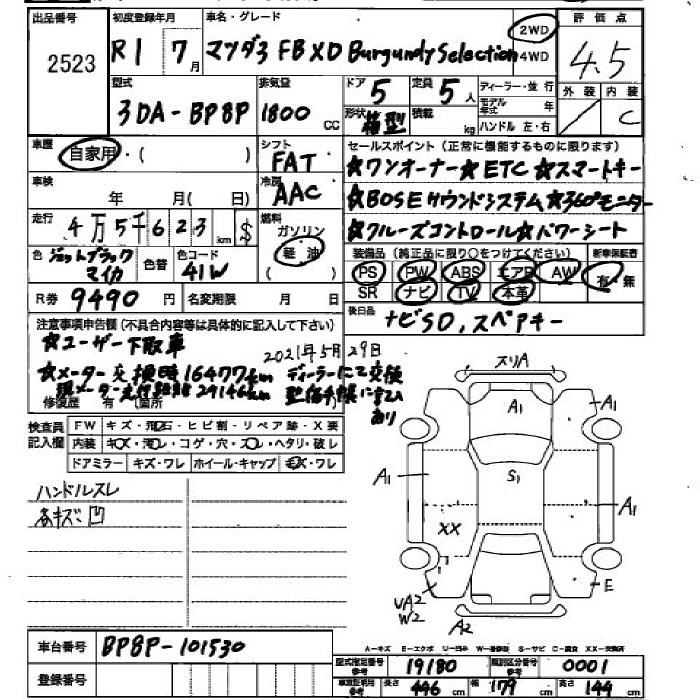 出品番号 初度登録年月 車名・グレード 2WD 4WD 評価点
2523 R1 7月 マツダ3 FB XD Burgundy Selection 4.5
型式 排気量 ドア 5 定員 5人 ディーラー・並行 外装 内装
3DA-BP8P 1800cc 形状 箱型 積載 kg モデル年式 年 ハンドル 左・右 / C
車歴 自家用・( ) シフト FAT セールスポイント(正常に機能するものに限ります)
☆ワンオーナー☆ETC☆スマートキー
車検 年 月( 日) 冷房 AAC
☆BOSEサウンドシステム☆360°モニター
走行 4万5千623km $ 燃料 ガソリン 軽油 ( )
☆クルーズコントロール☆パワーシート
色 ジェットブラックマイカ 色替 色コード 41W
装備品(純正品に限り○をつけてください) 新車保証書
PS PW ABS エアB AW 有・無
SR ナビ TV 本革
R券 9490円 名変期限 月 日
後日品 ナビSD,スペアキー
注意事項申告欄(不具合内容等は具体的に記入して下さい)
☆ユーザー下取車 2021年5月29日
☆メーター交換時16477km ディーラーにて交換
現メーター走行距離29146km 整備手帳に記入あり
修復歴 有 (箇所
検査員記入欄 FW キズ・飛石・ヒビ割・リペア跡・X要
内装 キズ・汚レ・コゲ・穴・スレ・ヘタリ・破レ
ドアミラー キズ・ワレ ホイール・キャップ キズ・ワレ
ハンドルスレ
各キズ凹
スリA
A1 A1
A1 S1 A1
XX
E
UA2
W2
A2
A-キズ E-エクボ U-凹み W-補修跡 S-サビ C-腐食 XX-交換済
車台番号 BP8P-101530
登録番号
型式指定番号 参考 19180 類別区分番号 参考 0001
車検証明用 参考 長さ 446cm 幅 179cm 高さ 144cm